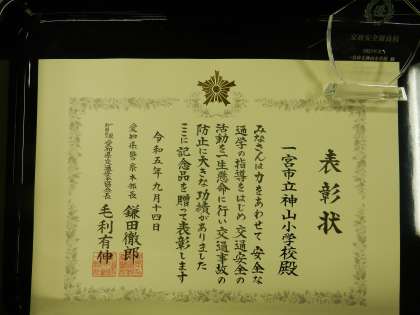 表彰状
一宮市立神山小学校殿
みなさんは力をあわせて安全な
通学の指導をはじめ交通安全の
活動を一生懸命に行い交通事故の
防止に大きな功績がありました
ここに記念品を贈って表彰します
令和五年九月十四日
愛知県警察本部長 鎌田徹郎
愛知県交通安全協会長 毛利有伸